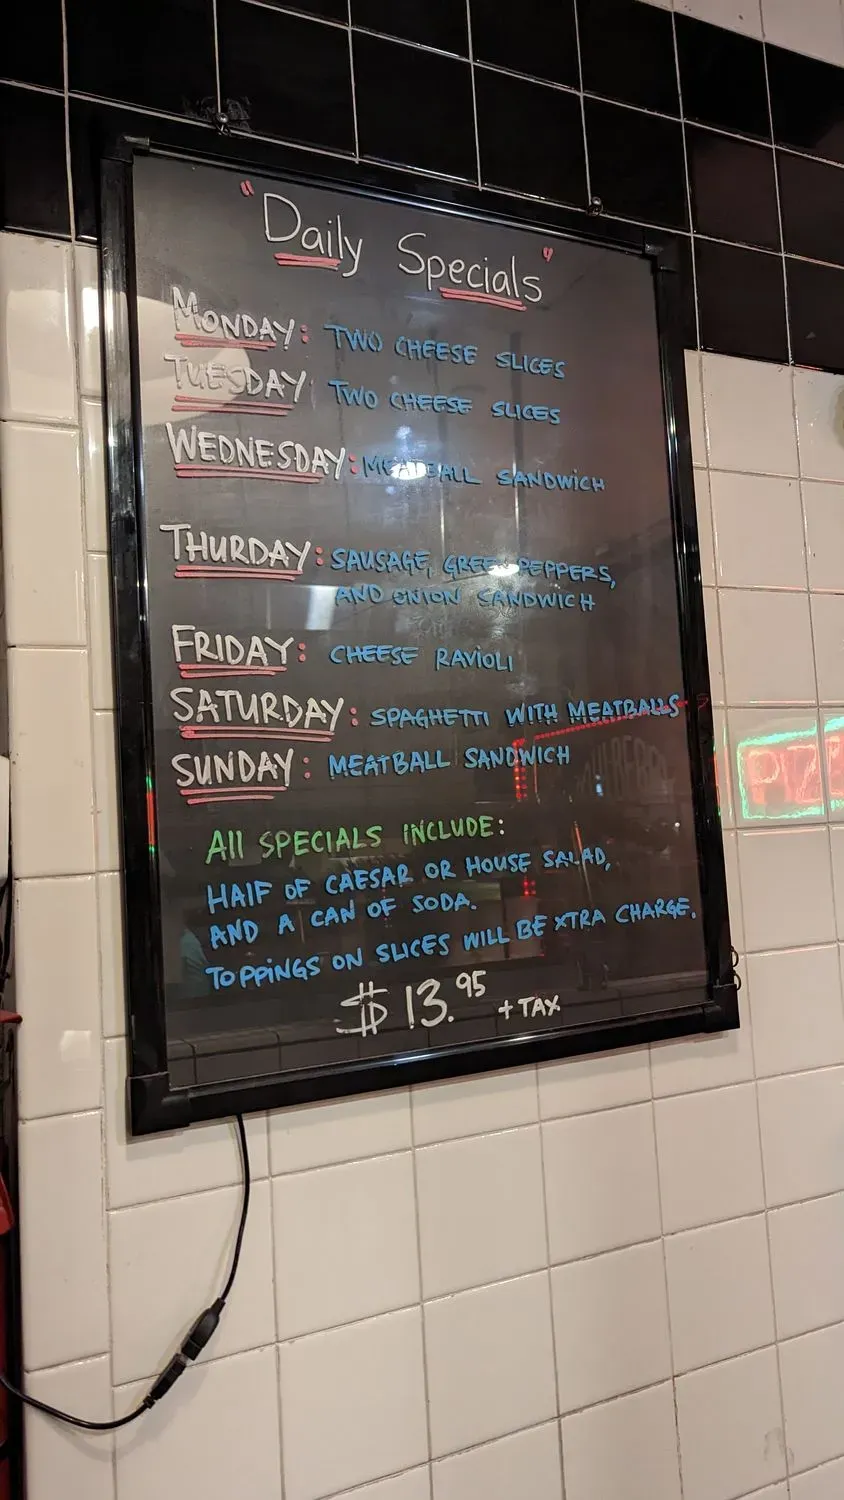 "Daily Specials"
MONDAY: TWO CHEESE SLICES
TUESDAY: TWO CHEESE SLICES
WEDNESDAY: MEATBALL SANDWICH
THURDAY: SAUSAGE, GREEN PEPPERS,
AND ONION SANDWICH
FRIDAY: CHEESE RAVIOLI
SATURDAY: SPAGHETTI WITH MEATBALLS
SUNDAY: MEATBALL SANDWICH
All SPECIALS INCLUDE:
HALF OF CAESAR OR HOUSE SALAD,
AND A CAN OF SODA.
TOPPINGS ON SLICES WILL BE XTRA CHARGE.
$13.95 + TAX